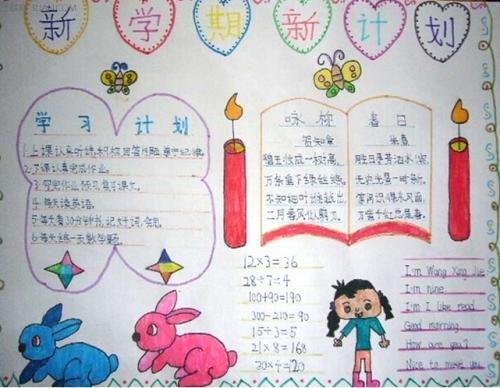 新学期新计划
学习计划
1.上课认真听讲,积极回答问题,遵守纪律。
2.下课认真完成作业。
3.写完作业预习复习课文。
4.每天读英语。
5.每天看30分钟书,记好词、好句。
6.每天练一页数学题。
咏柳
贺知章
碧玉妆成一树高,
万条垂下绿丝绦。
不知细叶谁裁出,
二月春风似剪刀。
春日
朱熹
胜日寻芳泗水滨,
无边光景一时新。
等闲识得东风面,
万紫千红总是春。
12×3=36
28÷7=4
100+90=190
300-210=90
15÷3=5
21×8=168
20×4=20
I'm Wang Xing Jie
I'm nine.
I'm I like read
Good morning.
How are you?
Nice to meet you.